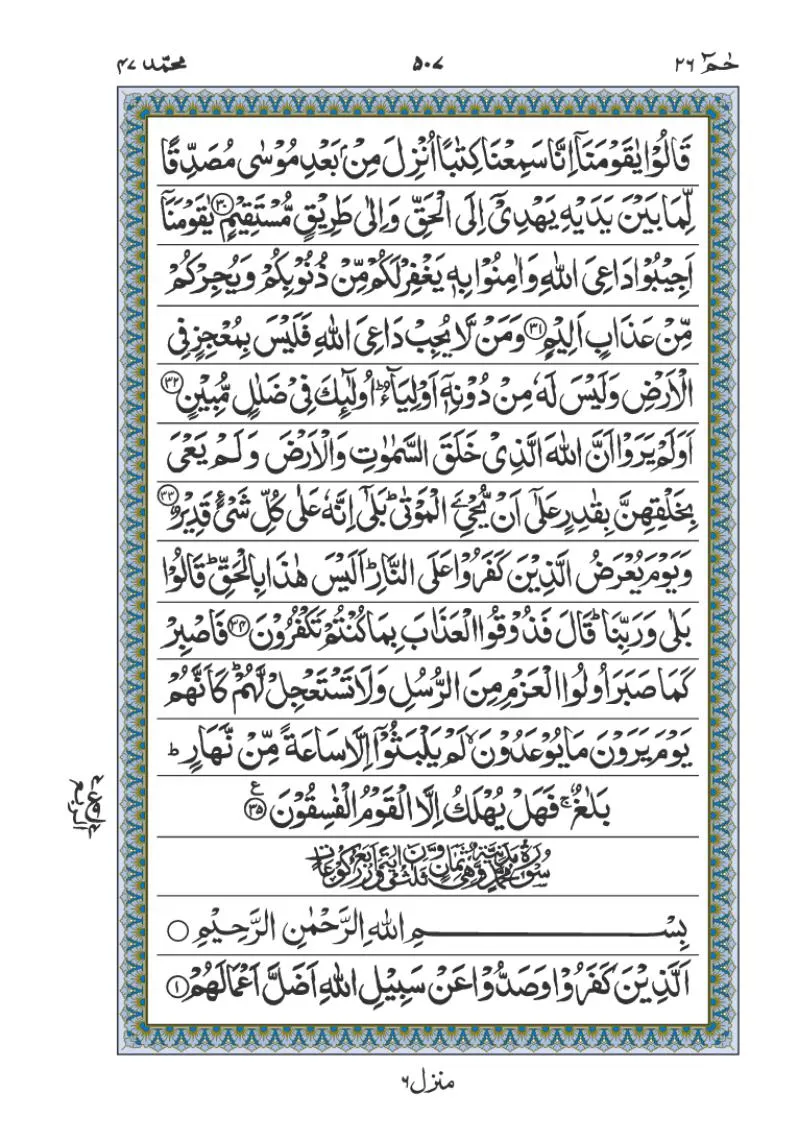 حٰمٓ ٢٦ ٥٠٧ محمّد ٤٧
قَالُوۡا يٰقَوۡمَنَاۤ اِنَّا سَمِعۡنَا كِتٰبًا اُنۡزِلَ مِنۡۢ بَعۡدِ مُوۡسٰى مُصَدِّقًا
لِّمَا بَيۡنَ يَدَيۡهِ يَهۡدِىۡۤ اِلَى الۡحَقِّ وَاِلٰى طَرِيۡقٍ مُّسۡتَقِيۡمٍ ﴿٣٠﴾ يٰقَوۡمَنَاۤ
اَجِيۡبُوۡا دَاعِىَ اللّٰهِ وَاٰمِنُوۡا بِهٖ يَغۡفِرۡ لَكُمۡ مِّنۡ ذُنُوۡبِكُمۡ وَيُجِرۡكُمۡ
مِّنۡ عَذَابٍ اَلِيۡمٍ ﴿٣١﴾ وَمَنۡ لَّا يُجِبۡ دَاعِىَ اللّٰهِ فَلَيۡسَ بِمُعۡجِزٍ فِى
الۡاَرۡضِ وَلَيۡسَ لَهٗ مِنۡ دُوۡنِهٖۤ اَوۡلِيَآءُ‌ؕ اُولٰٓٮِٕكَ فِىۡ ضَلٰلٍ مُّبِيۡنٍ ﴿٣٢﴾
اَوَلَمۡ يَرَوۡا اَنَّ اللّٰهَ الَّذِىۡ خَلَقَ السَّمٰوٰتِ وَالۡاَرۡضَ وَلَمۡ يَعۡىَ
بِخَلۡقِهِنَّ بِقٰدِرٍ عَلٰٓى اَنۡ يُّحۡیَِۧ الۡمَوۡتٰى‌ؕ بَلٰٓى اِنَّهٗ عَلٰى كُلِّ شَىۡءٍ قَدِيۡرٌ ﴿٣٣﴾
وَيَوۡمَ يُعۡرَضُ الَّذِيۡنَ كَفَرُوۡا عَلَى النَّارِ‌ؕ اَلَيۡسَ هٰذَا بِالۡحَقِّ‌ؕ قَالُوۡا
بَلٰى وَرَبِّنَا‌ؕ قَالَ فَذُوۡقُوا الۡعَذَابَ بِمَا كُنۡتُمۡ تَكۡفُرُوۡنَ ﴿٣٤﴾ فَاصۡبِرۡ
كَمَا صَبَرَ اُولُوا الۡعَزۡمِ مِنَ الرُّسُلِ وَلَا تَسۡتَعۡجِلْ لَّهُمۡ‌ؕ كَاَنَّهُمۡ
يَوۡمَ يَرَوۡنَ مَا يُوۡعَدُوۡنَۙ لَمۡ يَلۡبَثُوۡۤا اِلَّا سَاعَةً مِّنۡ نَّهَارٍ‌ ؕ
بَلٰغٌ ۚ فَهَلۡ يُهۡلَكُ اِلَّا الۡقَوۡمُ الۡفٰسِقُوۡنَ ﴿٣٥﴾ ع
بِسۡمِ اللّٰهِ الرَّحۡمٰنِ الرَّحِيۡمِ ○
اَلَّذِيۡنَ كَفَرُوۡا وَصَدُّوۡا عَنۡ سَبِيۡلِ اللّٰهِ اَضَلَّ اَعۡمَالَهُمۡ ﴿١﴾
منزل ٦